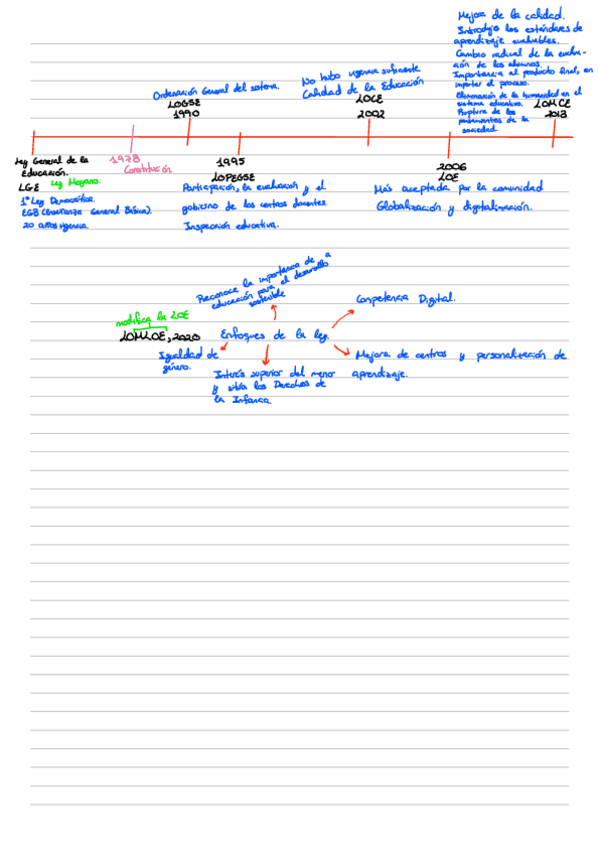 Mejora de la calidad.
Introdujo los estándares de
aprendizaje evaluables.
Cambio radical de la evalu-
ación de los alumnos.
Importancia al producto final, sin
importar el proceso.
Eliminación de la humanidad en el
sistema educativo.
Ruptura de los
de la
sociedad.
LOMCE
2013
No hubo vigencia suficiente
Calidad de la Educación
LOCE
2002
Ordenación General del sistema.
LOGSE
1990
Ley General de la
Educación.
Ley Moyano.
LGE
1ª Ley Democrática.
EGB (Enseñanza General Básica).
20 años vigencia.
1978
Constitución.
1995
LOPEGSE
Participación, la evaluación y el
gobierno de los centros docentes
Inspección educativa.
2006
LOE
Más aceptada por la comunidad
Globalización y digitalización.
Reconoce la importancia de a
educación para el desarrollo
sostenible
Competencia Digital.
modifica la LOE
LOMLOE, 2020
Enfoques de la ley.
Igualdad de
género.
Interés superior del menor
y sitúa los Derechos de
la Infancia
Mejora de centros y personalización de
aprendizaje.